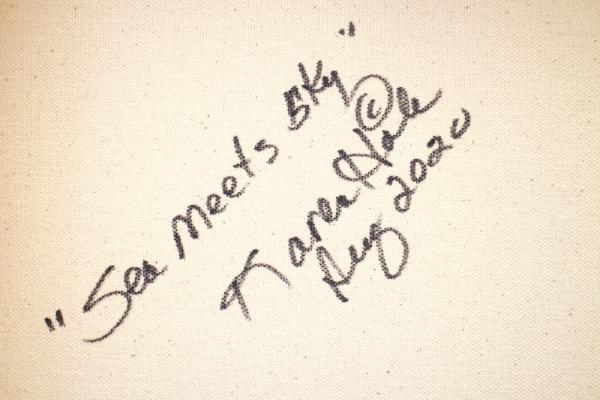 "Sea Meets Sky"
Karen Hale ©
Aug 2020